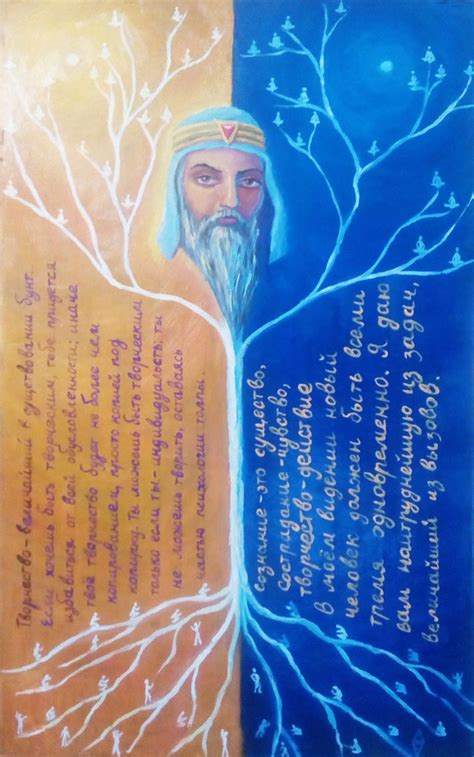 Творчество - величайший в существовании бунт.
Если хочешь быть творческим, тебе придется
избавиться от всей обусловленности; иначе
твоё творчество будет не более чем
копированием, просто копией под
копирку. Ты можешь быть творческим
только если ты - индивидуальность; ты
не можешь творить, оставаясь
частью психологии толпы.
Сознание - это существо,
Сострадание - чувство,
творчество - действие
В моём видении новый
человек должен быть всеми
тремя одновременно. Я даю
вам наитруднейшую из задач,
величайший из вызовов.